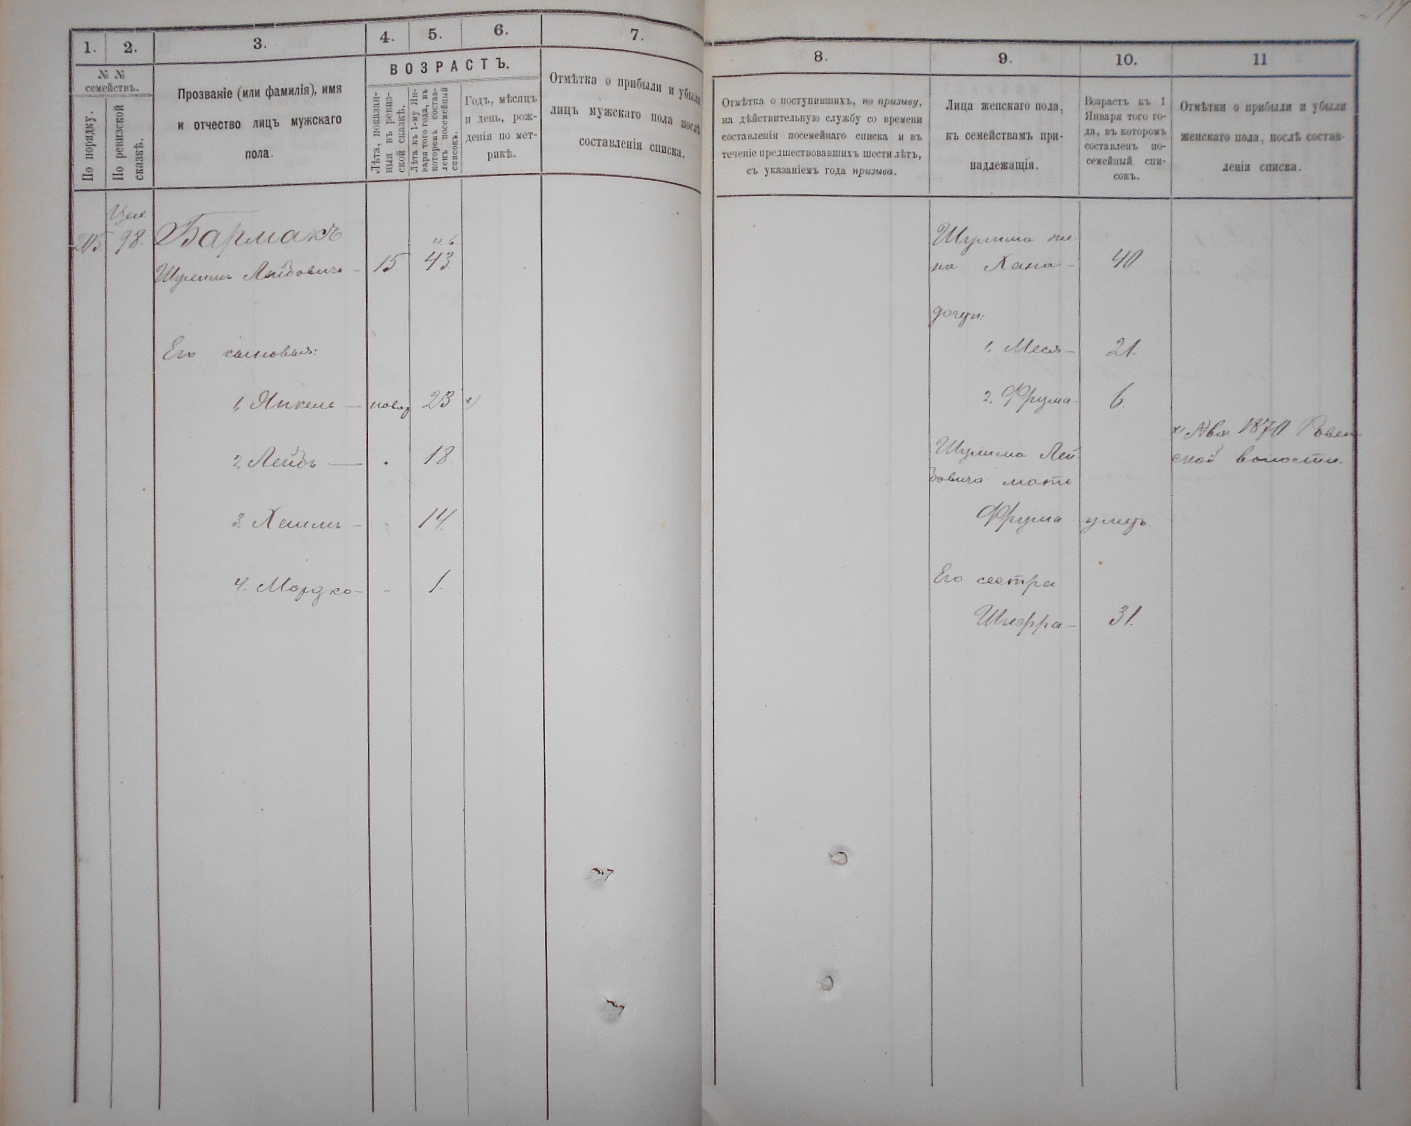 1.
2.
3.
4.
5.
6.
7.
№ №
семействъ.
По порядку.
По ревизской
сказкѣ.
Прозваніе (или фамилія), имя
и отчество лицъ мужскаго
пола.
ВОЗРАСТЪ.
Лѣта, показан-
ныя въ ревиз-
ской сказкѣ.
Лѣта къ 1-му Ян-
варя того года, въ
которомъ состав-
ленъ посемейный
списокъ.
Годъ, мѣсяцъ
и день, рож-
денія по мет-
рикѣ.
Отмѣтка о прибыли и убыли
лицъ мужскаго пола послѣ
составленія списка.
205
98
Бармакъ
Шулимъ Лейбовичъ – 15 43
Его сыновья:
1. Янкель – 23 х)
2. Лейбъ – 18
3. Хаимъ – 14.
4. Мордко – 1.
8.
9.
10.
11
Отмѣтка о поступившихъ, по призыву,
на дѣйствительную службу со времени
составленія посемейнаго списка и въ
теченіе предшествовавшихъ шести лѣтъ,
съ указаніемъ года призыва.
Лица женскаго пола,
къ семействамъ при-
надлежащія.
Возрастъ къ 1
Января того го-
да, въ которомъ
составленъ по-
семейный спи-
сокъ.
Отмѣтки о прибыли и убыли
женскаго пола, послѣ состав-
ленія списка.
Шулима же
на Хана – 40
дочери:
1. Меся – 21.
2. Фрума – 6
Шулима Лей
бовича мать
Фрума умер.
Его сестра
Шифра – 31.
1870
ской волости.